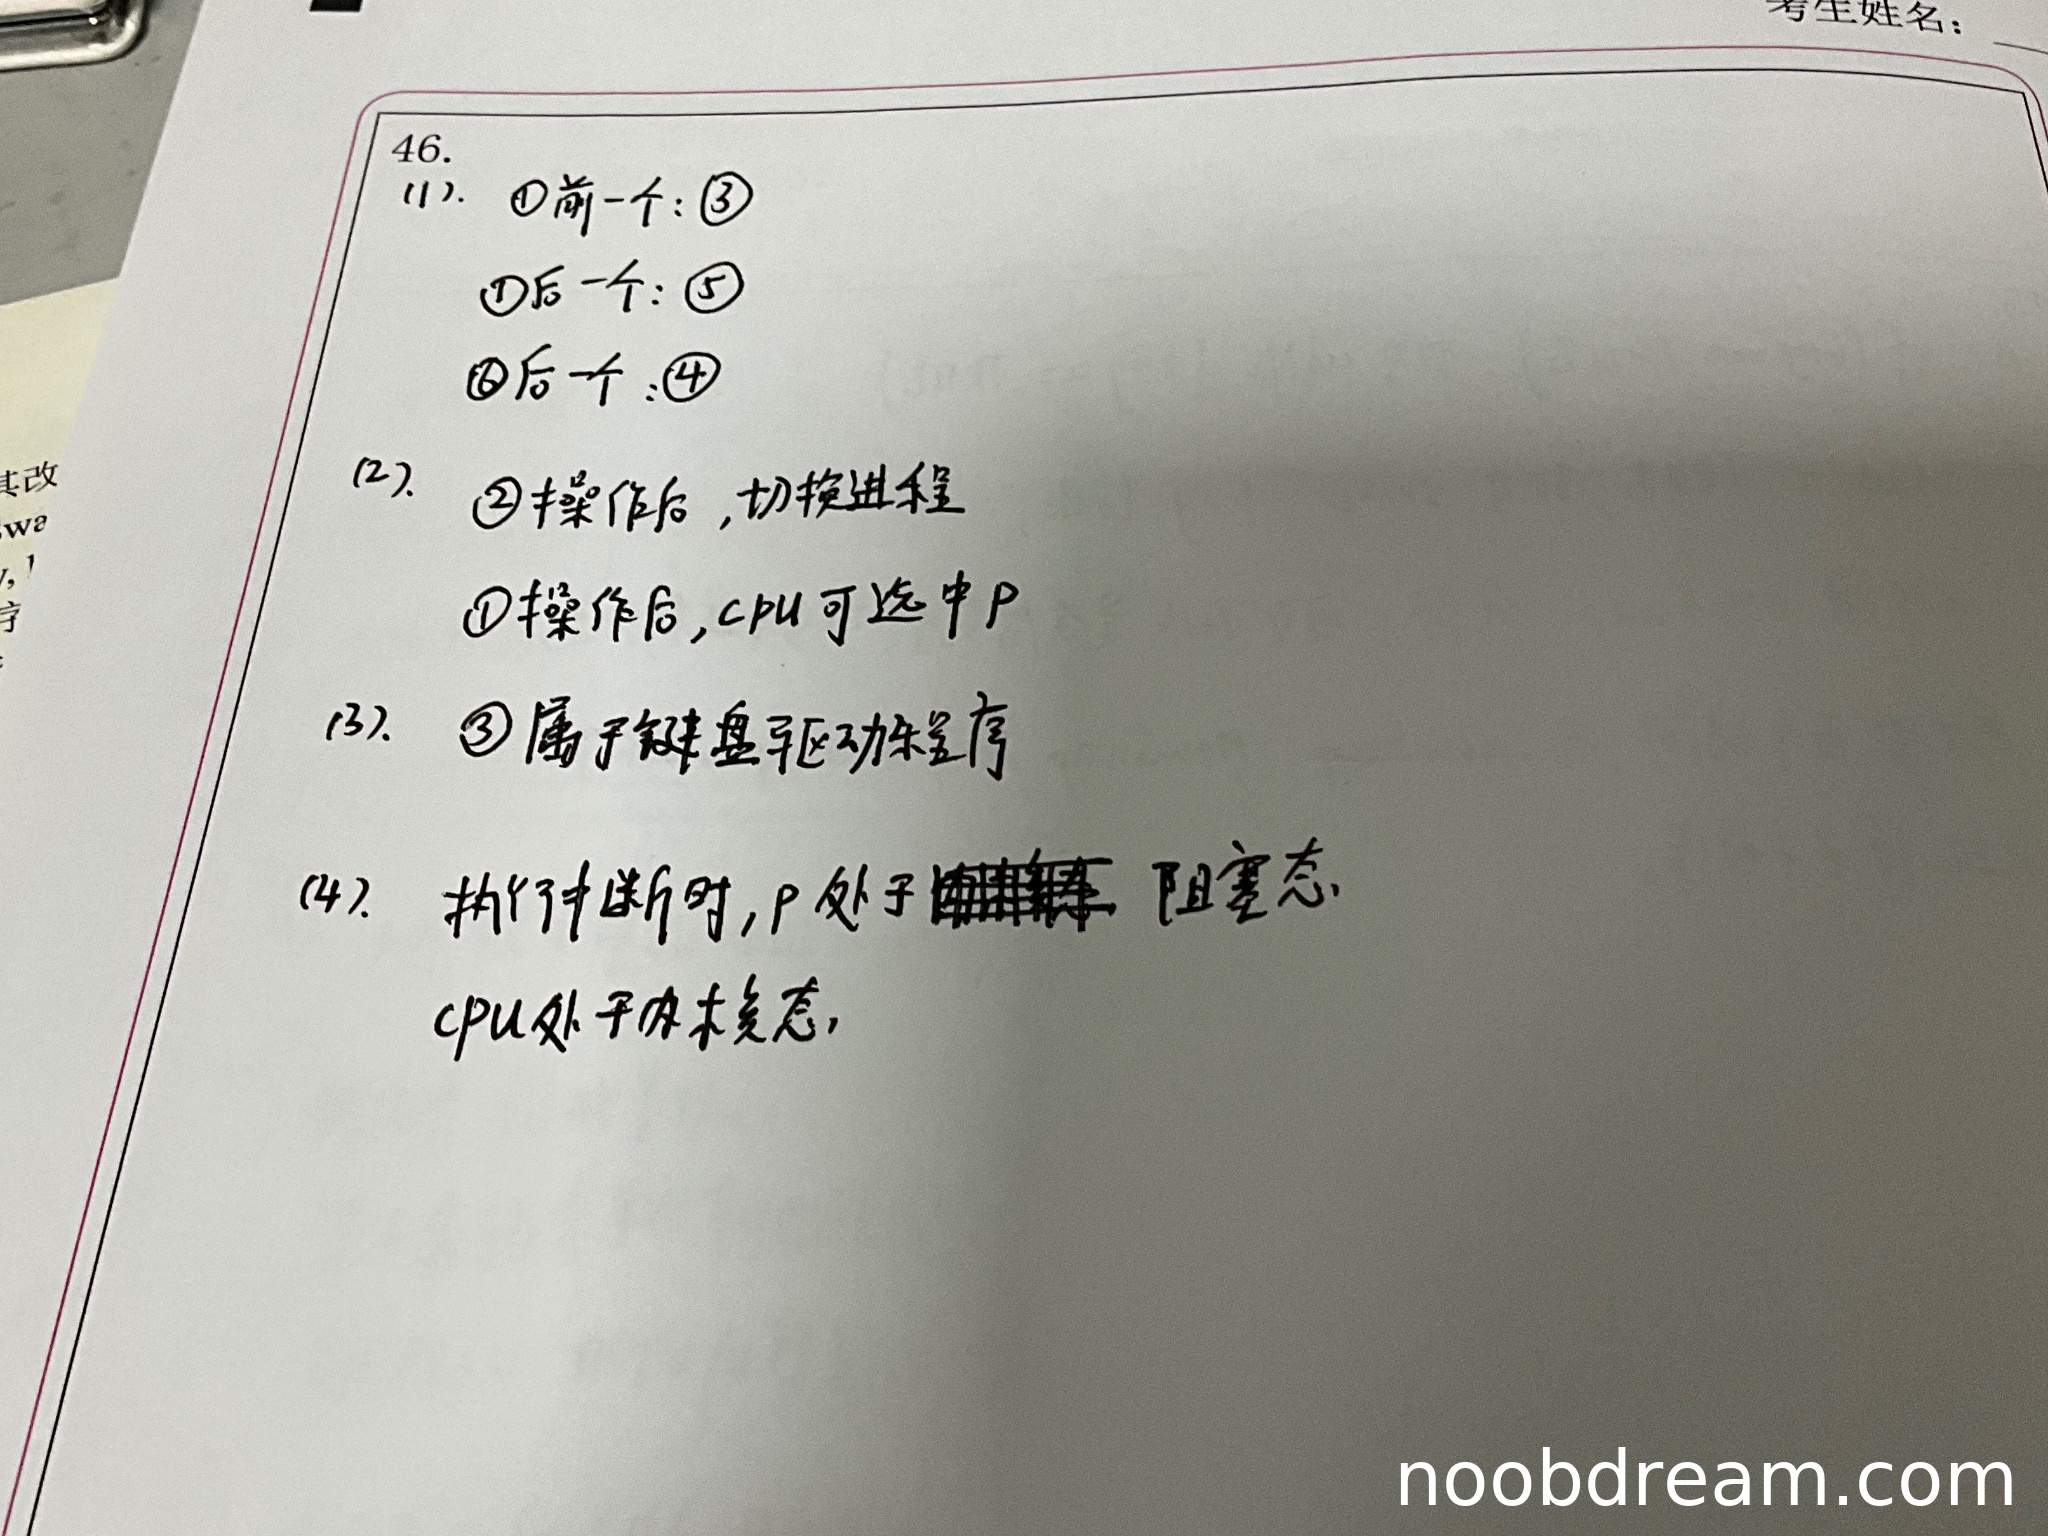 考生姓名：
46.
(1). ①前一个：③
①后一个：⑤
⑥后一个：④
(2). ②操作后，切换进程
①操作后，CPU可选中P
(3). ③属于键盘驱动程序
(4). 执行中断时，P处于 阻塞态.
CPU处于内核态，
其改
swa
y,
序
noobdream.com